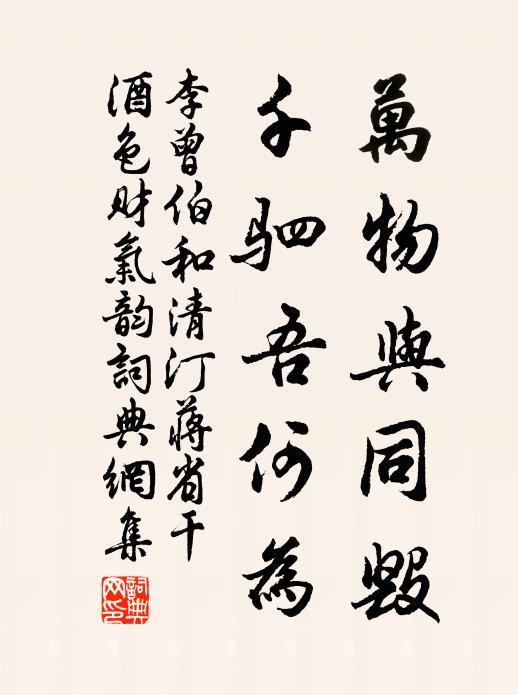 萬物與同毀
千駟吾何為
李曾伯和清汀蔣省干
酒色财氣韵詞典網集
詞典网印